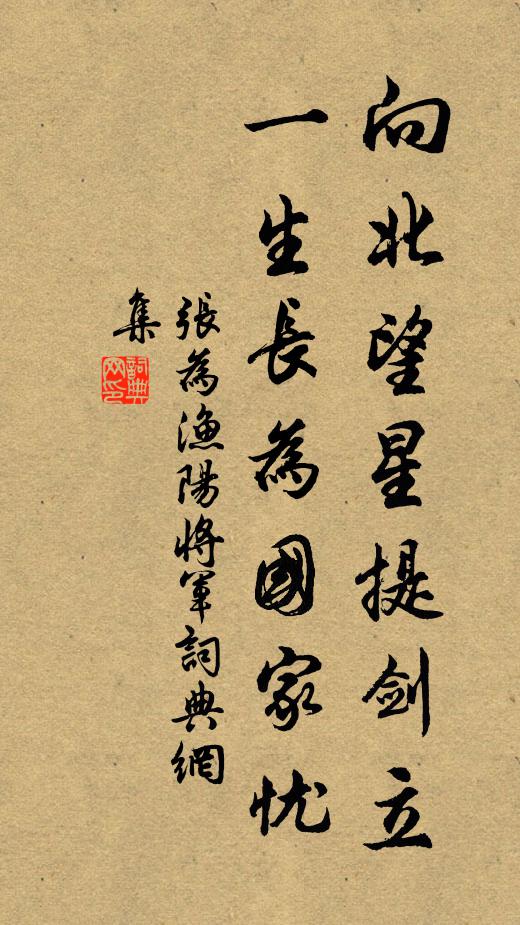 向北望星提剑立
一生長為國家忧
張為漁陽將軍詞典網
集
詞典
网印